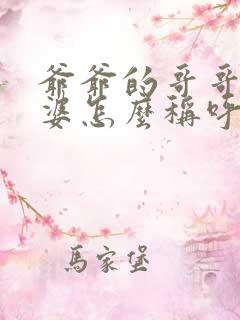 爺爺的哥哥
婆怎麼稱呼
馬家堡